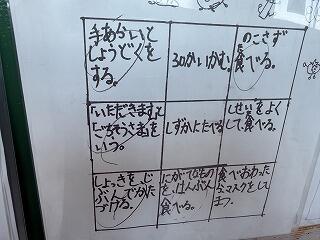 手あらいと
しょうどくを
する。
30かいかむ。
のこさず
食べる。
「いただきます」と
「ごちそうさま」を
いう。
しずかにたべる
しせいをよく
して食べる。
しょっきを、じ
ぶんでかた
づける。
にがてなもの
を、はんぶん
食べる。
食べおわった
らマスクをして
まつ。